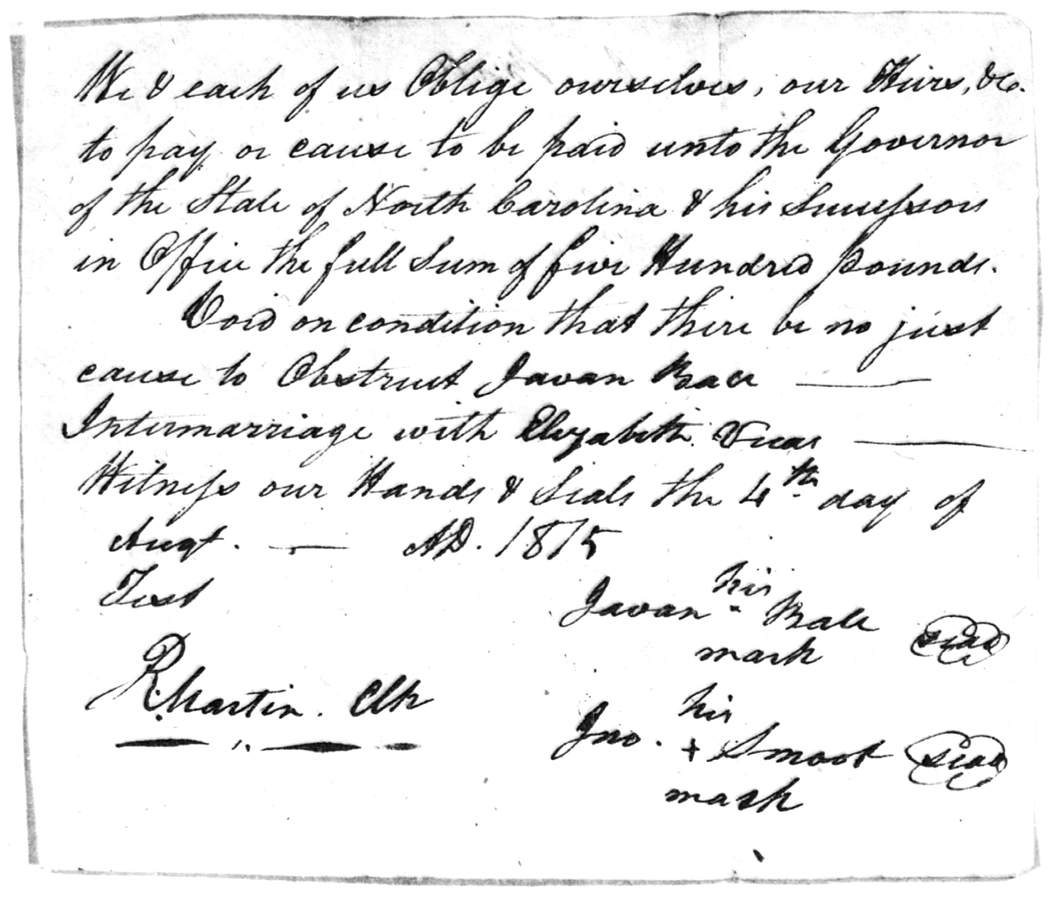 We & each of us Oblige ourselves, our Heirs, &c.
to pay or cause to be paid unto the Governor
of the State of North Carolina & his Successors
in Office the full Sum of five Hundred pounds.
Void on condition that there be no just
cause to Obstruct Javan Ball
Intermarriage with Elizabeth
Witness our Hands & Seals the 4th day of
Augt. AD. 1815
Test
Javan his Ball seal
mark
R. Martin. Clk
his
Jno. + Smoot seal
mark